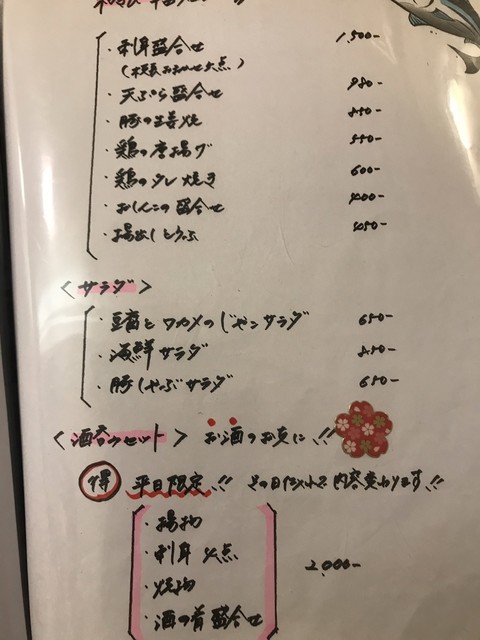 ・刺身盛合せ 1,500-
・天ぷら盛合せ 980-
・豚の生姜焼 850-
・鶏の唐揚げ 550-
・鶏のタレ焼き 600-
・おしんこの盛合せ 400-
・揚出しとうふ 450-
<サラダ>
・豆腐とワカメのじゃこサラダ 650-
・海鮮サラダ 850-
・豚しゃぶサラダ 650-
<酒呑みセット> お酒のお友に!!
得 平日限定!! その日だけで内容変わります!!
・揚物
・刺身 点
・焼物 2,000-
・酒の肴盛合せ